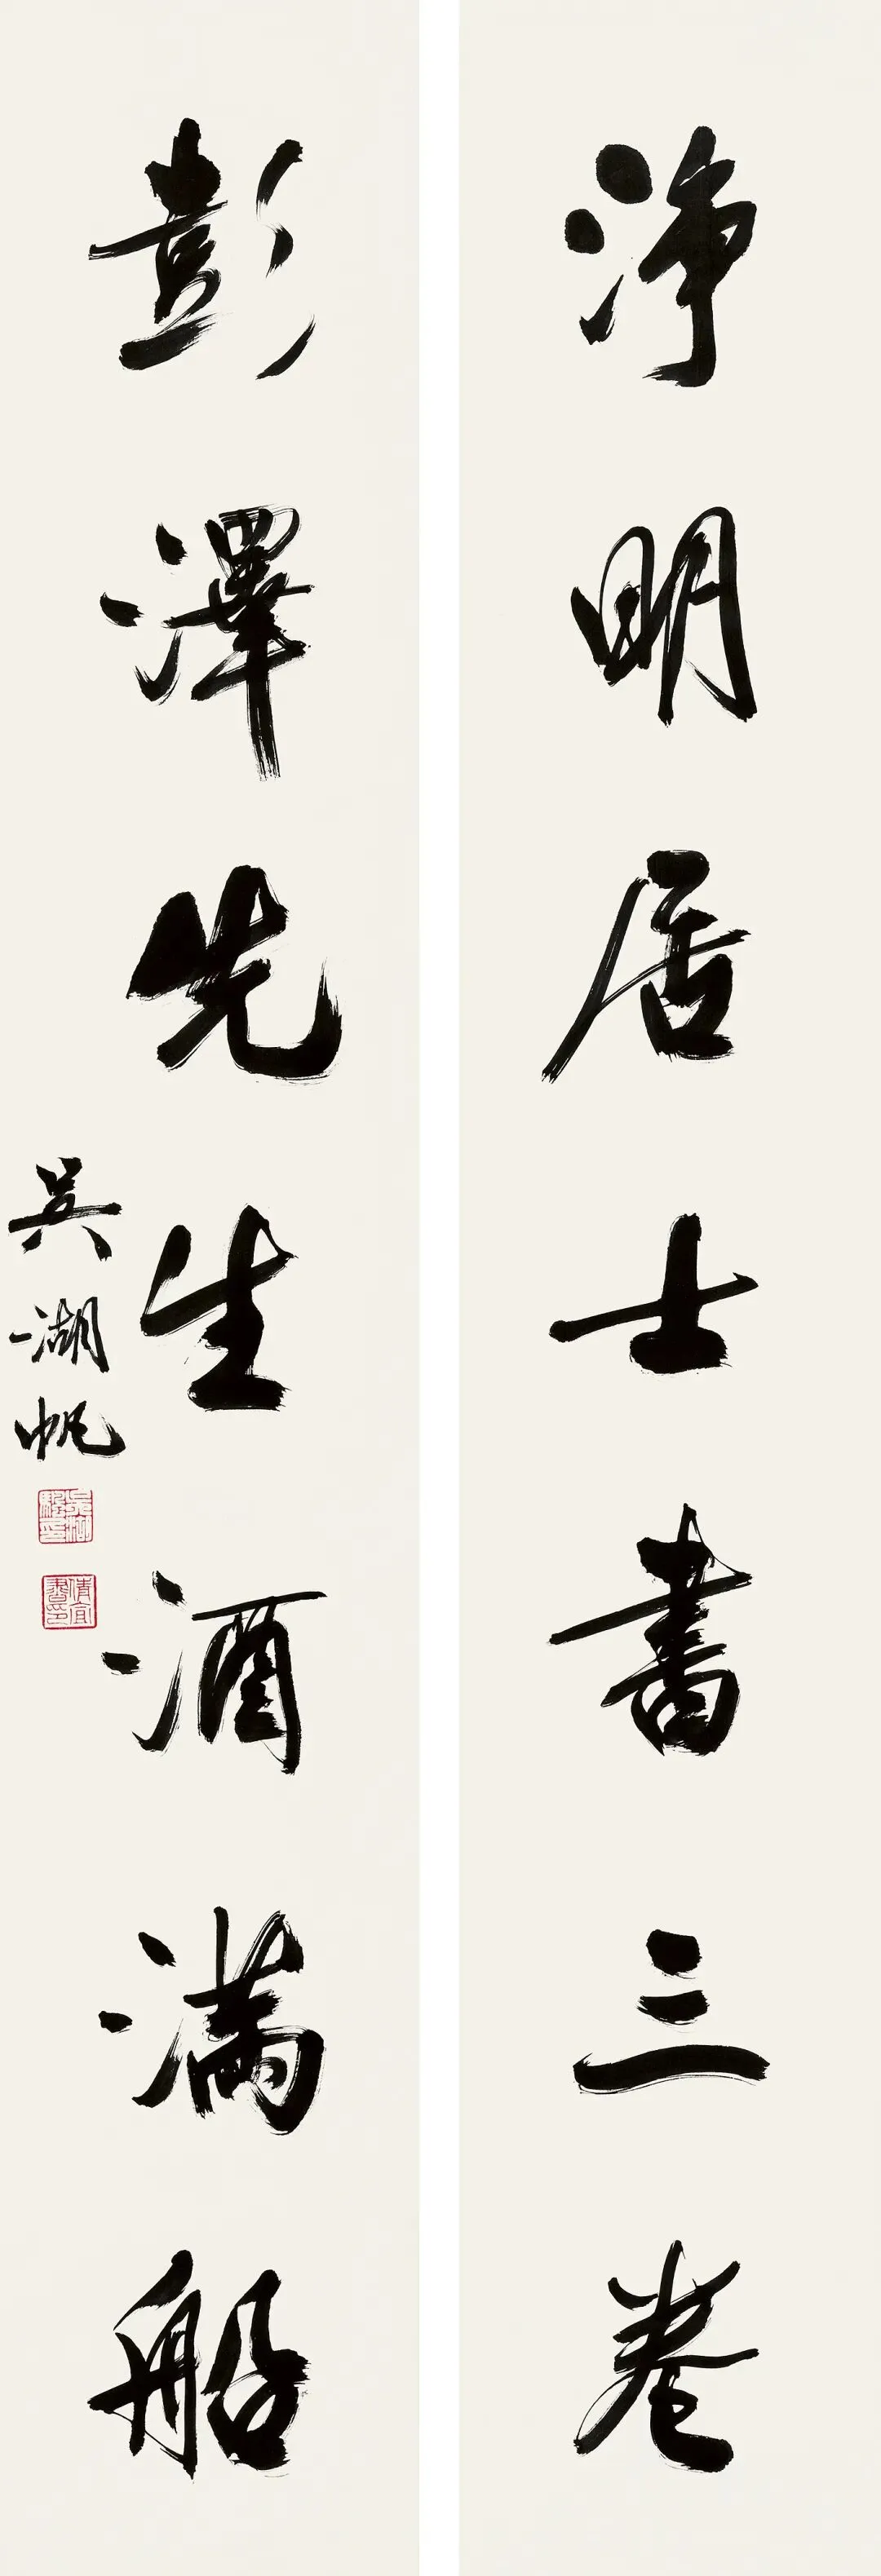 淨明居士書三卷
彭澤先生酒滿船
吳湖帆